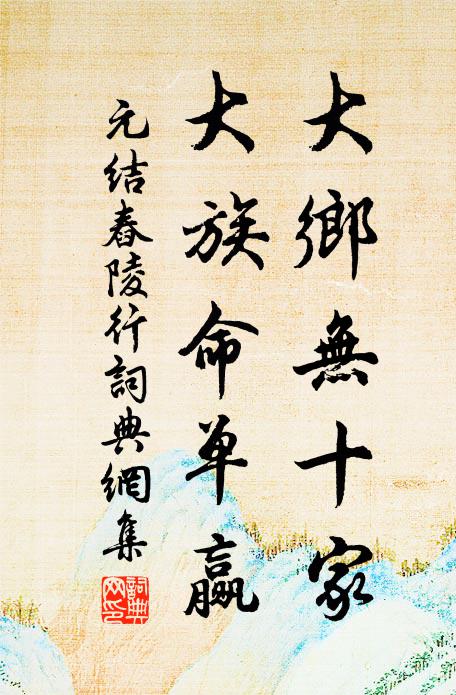 大鄉無十家
大族命单贏
元结舂陵行詞典網集
詞典网印